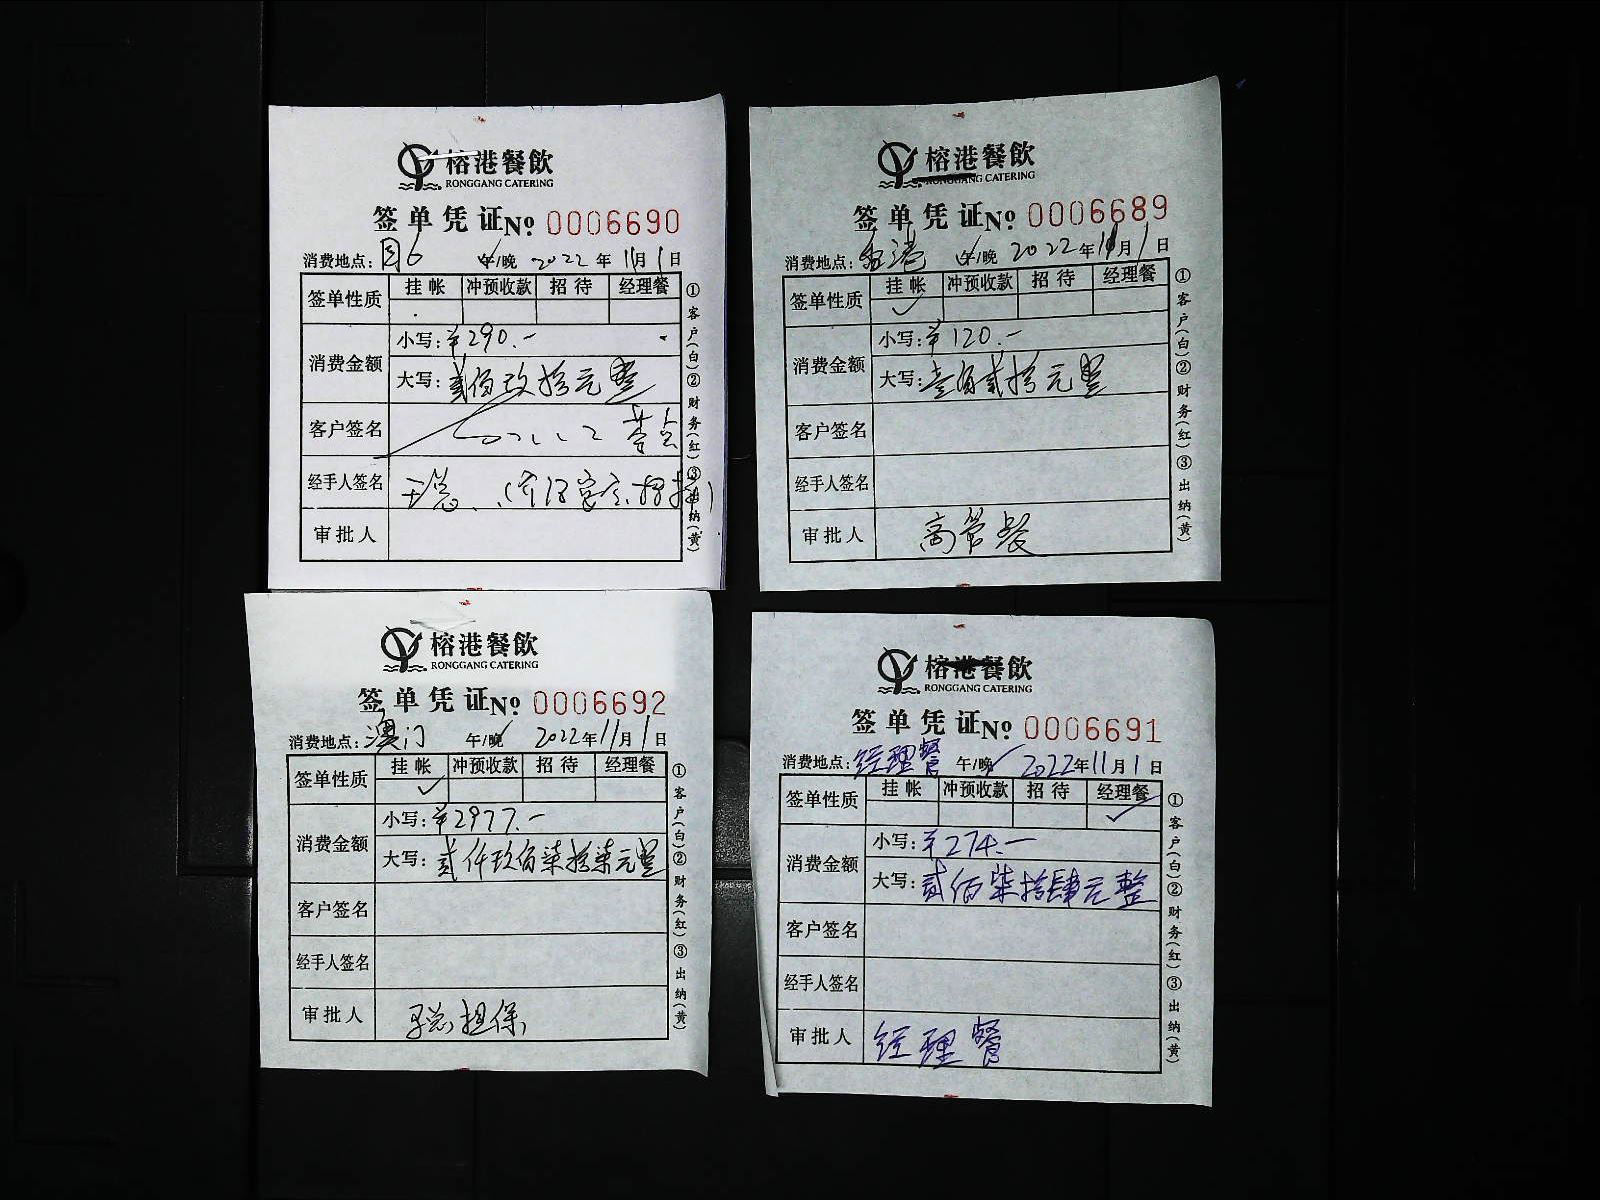 榕港餐飲
RONGGANG CATERING
签单凭证 No 0006690
消费地点: 6 午/晚 2022年11月1日
签单性质 挂帐 冲预收款 招待 经理餐
消费金额 小写: ¥290.-
大写: 贰佰玖拾元整
客户签名
经手人签名
审批人
①客户(白)②财务(红)③出纳(黄)
榕港餐飲
RONGGANG CATERING
签单凭证 No 0006689
消费地点: 香港 午/晚 2022年11月1日
签单性质 挂帐 冲预收款 招待 经理餐
✓
消费金额 小写: ¥120.-
大写: 壹佰贰拾元整
客户签名
经手人签名
审批人 高管餐
①客户(白)②财务(红)③出纳(黄)
榕港餐飲
RONGGANG CATERING
签单凭证 No 0006692
消费地点: 澳门 午/晚 2022年11月1日
签单性质 挂帐 冲预收款 招待 经理餐
✓
消费金额 小写: ¥2977.-
大写: 贰仟玖佰柒拾柒元整
客户签名
经手人签名
审批人 担保
①客户(白)②财务(红)③出纳(黄)
榕港餐飲
RONGGANG CATERING
签单凭证 No 0006691
消费地点: 经理餐 午/晚 2022年11月1日
签单性质 挂帐 冲预收款 招待 经理餐
✓
消费金额 小写: ¥274.-
大写: 贰佰柒拾肆元整
客户签名
经手人签名
审批人 经理餐
①客户(白)②财务(红)③出纳(黄)